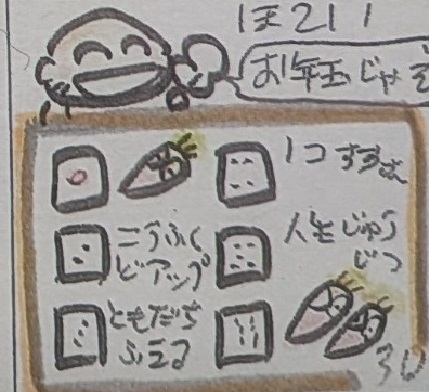 ほら！！
お年玉じゃぞ
1コすすむ
こうふく
どアップ
人生じゅう
じつ
ともだち
ふえる